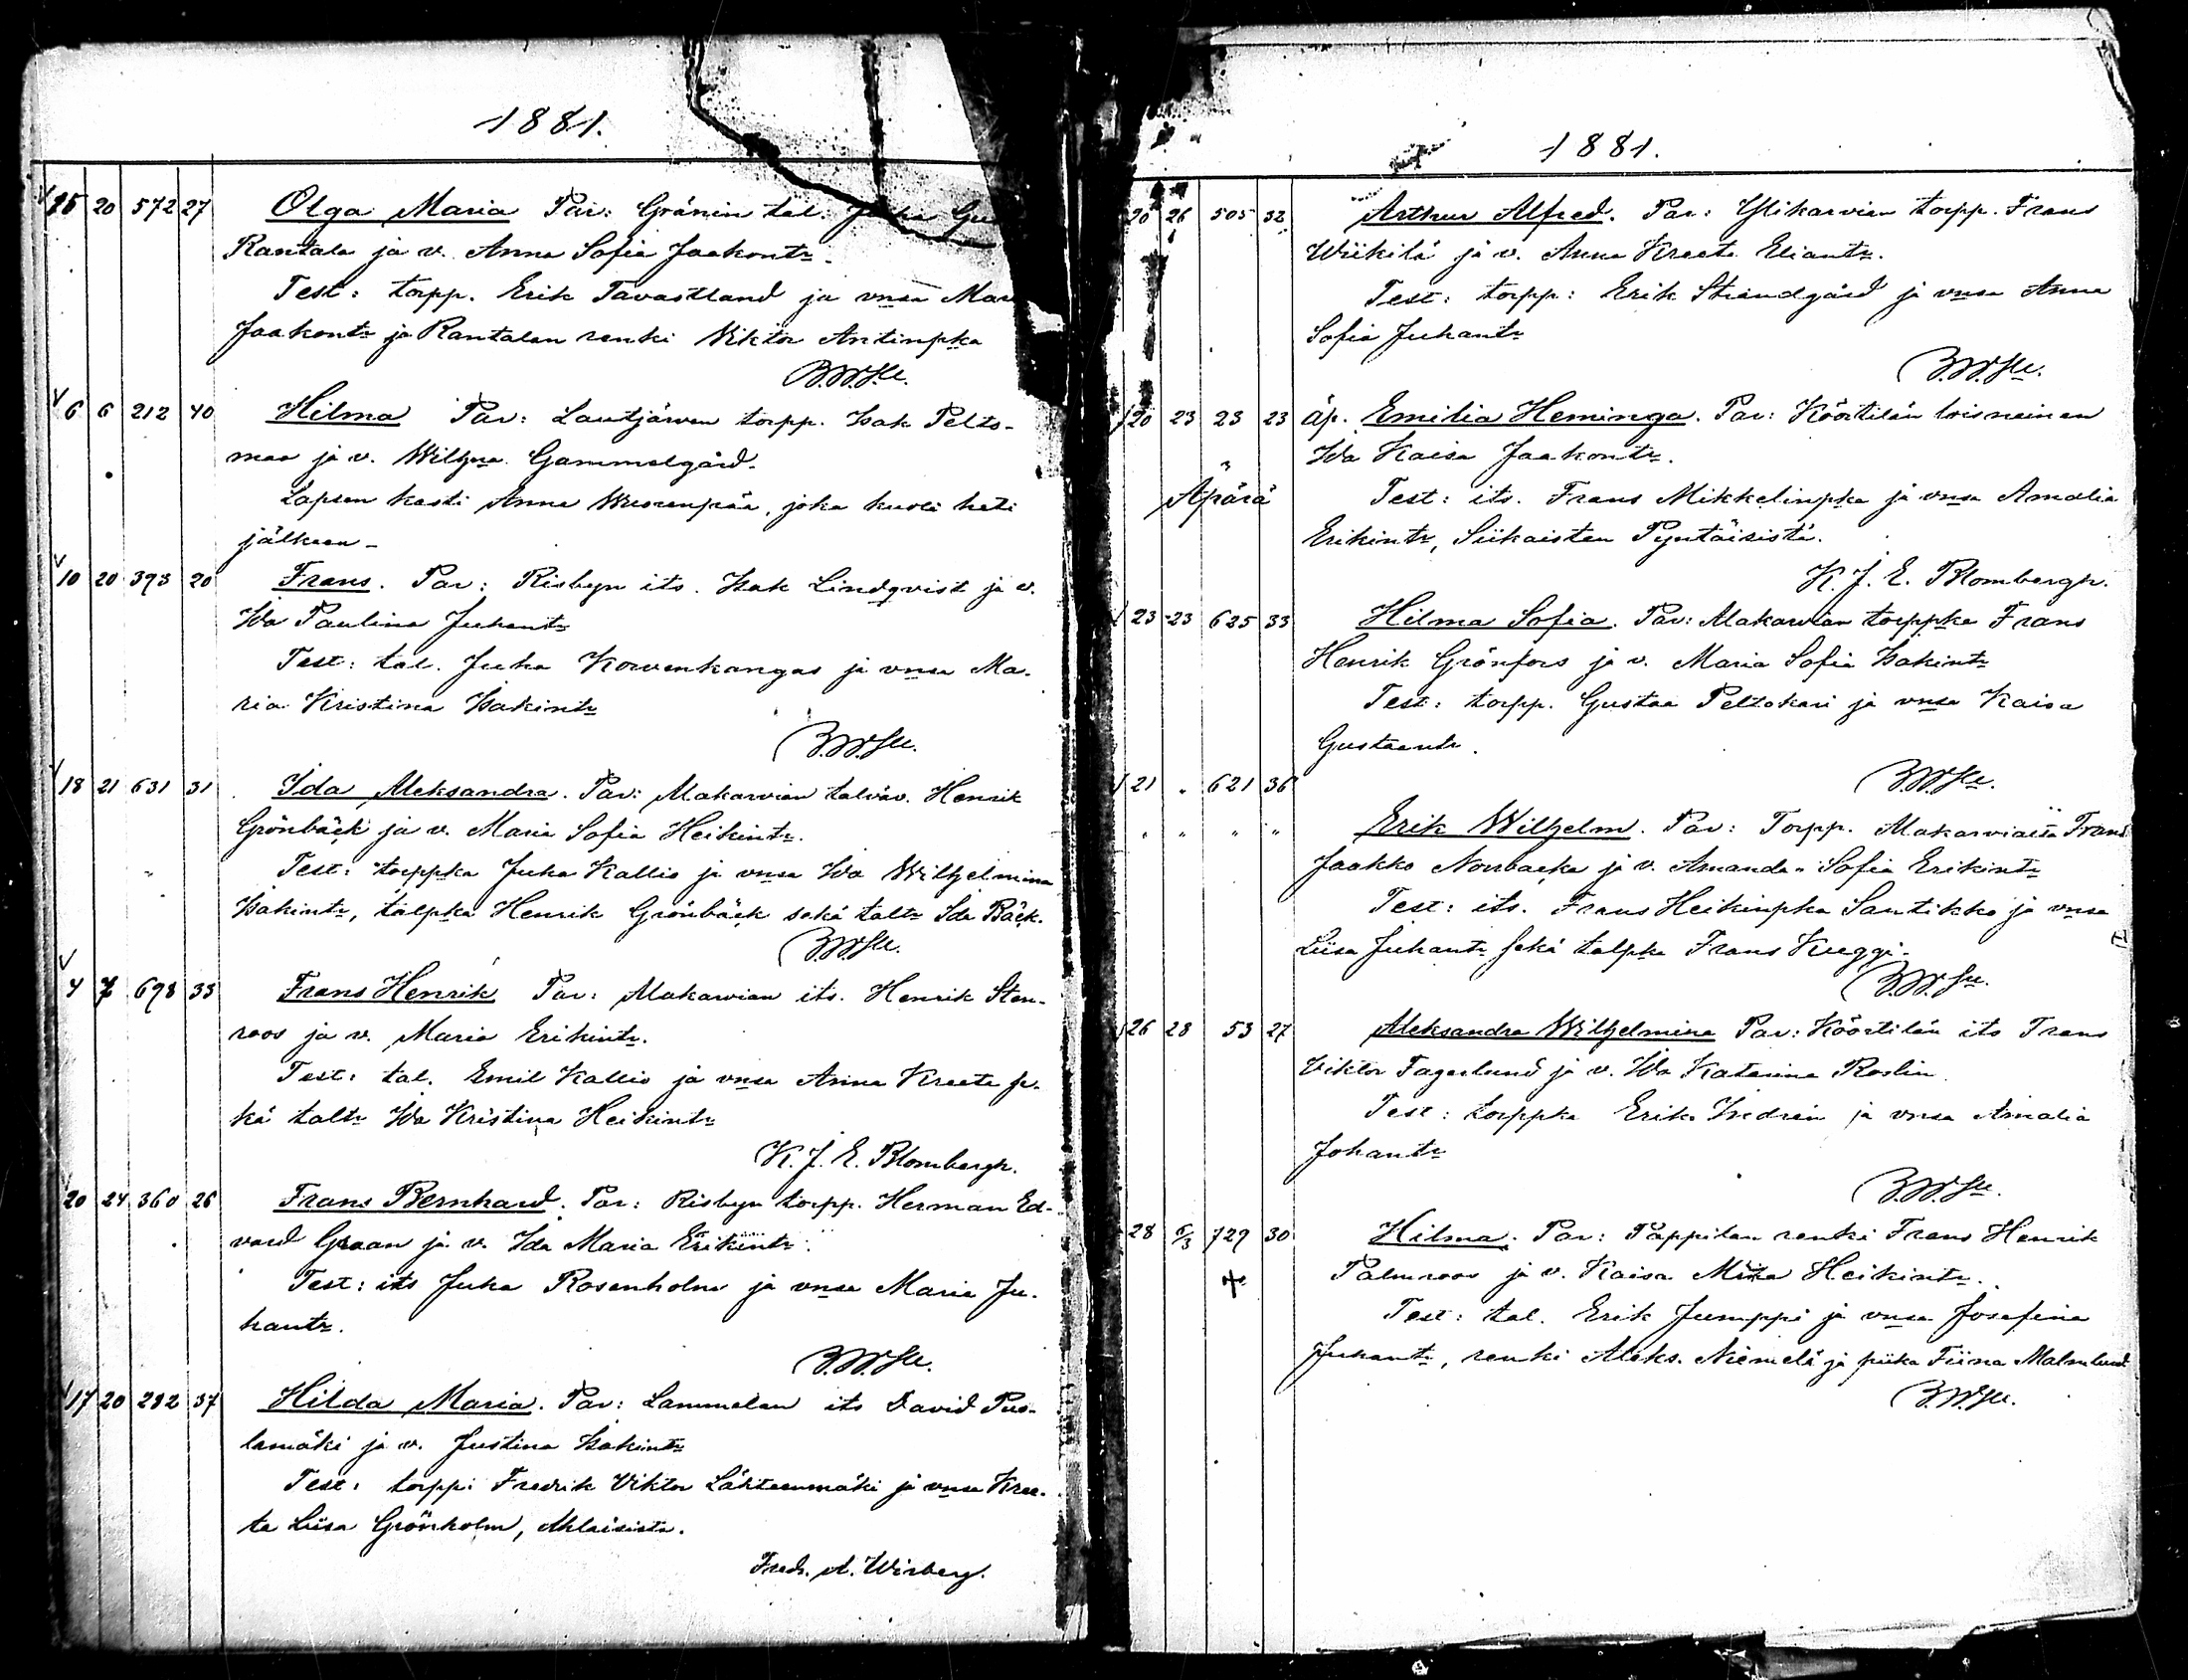 1881.
√15 20 572 27 Olga Maria Par: Gränin tal: Juha Gu
Rantala ja v. Anna Sofia Jaakontr.
Test: torpp. Erik Tavastland ja vnsa Mar
Jaakontr ja Rantalan renki Viktor Antinpka
√6 6 212 40 Hilma Par: Lautjärven torpp. Isak Pelto-
maa ja v. Wilhna Gammelgård.
Lapsen kasti Anna Wuorenpää, joka kuoli heti
jälkeen -
√10 20 393 20 Frans. Par: Risbyn its. Isak Lindqvist ja v.
Ida Paulina Juhantr
Test: tal. Juha Korvenkangas ja vnsa Ma-
ria Kristina Isakintr
√18 21 631 31 Ida Aleksandra. Par: Makarvian talväv. Henrik
Grönbäck ja v. Maria Sofia Heikintr.
Test: torppka Juha Kallio ja vnsa Ida Wilhelmina
Isakintr, talpka Henrik Grönbäck sekä taltr Ida Bäck.
√4 7 698 33 Frans Henrik Par: Makarvian its. Henrik Sten-
roos ja v. Maria Erikintr.
Test: tal. Emil Kallio ja vnsa Anna Kreeta se-
kä taltr Ida Kristina Heikintr
K. J. E. Blombergh.
20 24 360 26 Frans Bernhard. Par: Risbyn torpp. Herman Ed-
vard Graan ja v. Ida Maria Erikintr.
Test: its Juha Rosenholm ja vnsa Maria Ju-
hantr.
√17 20 282 37 Hilda Maria. Par: Lammelan its David Puo-
lamäki ja v. Justina Isakintr
Test: torpp: Fredrik Viktor Lähteenmäki ja vnsa Kree-
ta Liisa Grönholm, Ahlaisista.
Fredr. A. Wirberg.
1881.
20 26 505 32 Arthur Alfred. Par: Ylikarvian torpp. Frans
Wiikilä ja v. Anna Kreeta Eliantr.
Test: torpp: Erik Strandgård ja vnsa Anna
Sofia Juhantr
√20 23 23 23 äp. Emilia Heminga. Par: Köörtilän loisnainen
Ida Kaisa Jaakontr.
Äpärä Test: its. Frans Mikkelinpka ja vnsa Amalia
Erikintr, Siikaisten Pyntäisistä.
K. J. E. Blombergh.
√23 23 625 33 Hilma Sofia. Par: Makarvian torppka Frans
Henrik Grönfors ja v. Maria Sofia Isakintr
Test: torpp. Gustaa Peltokari ja vnsa Kaisa
Gustaantr.
√21 " 621 36
" " " " Erik Wilhelm. Par: Torpp. Makarviaisa Frans
Jaakko Norrbacka ja v. Amanda Sofia Erikintr
Test: its. Frans Heikinpka Santikko ja vnsa
Liisa Juhantr sekä talpka Frans Kuggi.
√26 28 53 27 Aleksandra Wilhelmina Par: Köörtilän its Frans
Viktor Fagerlund ja v. Ida Katarina Roslin
Test: torppka Erik ja vnsa Amalia
Johantr
28 6/3 729 30 Hilma. Par: Pappilan renki Frans Henrik
+ Palmroos ja v. Kaisa Heikintr.
Test: tal. Erik Jumppi ja vnsa Josefina
Juhantr, renki Aleks. Niemelä ja piika Tiina Malmlund